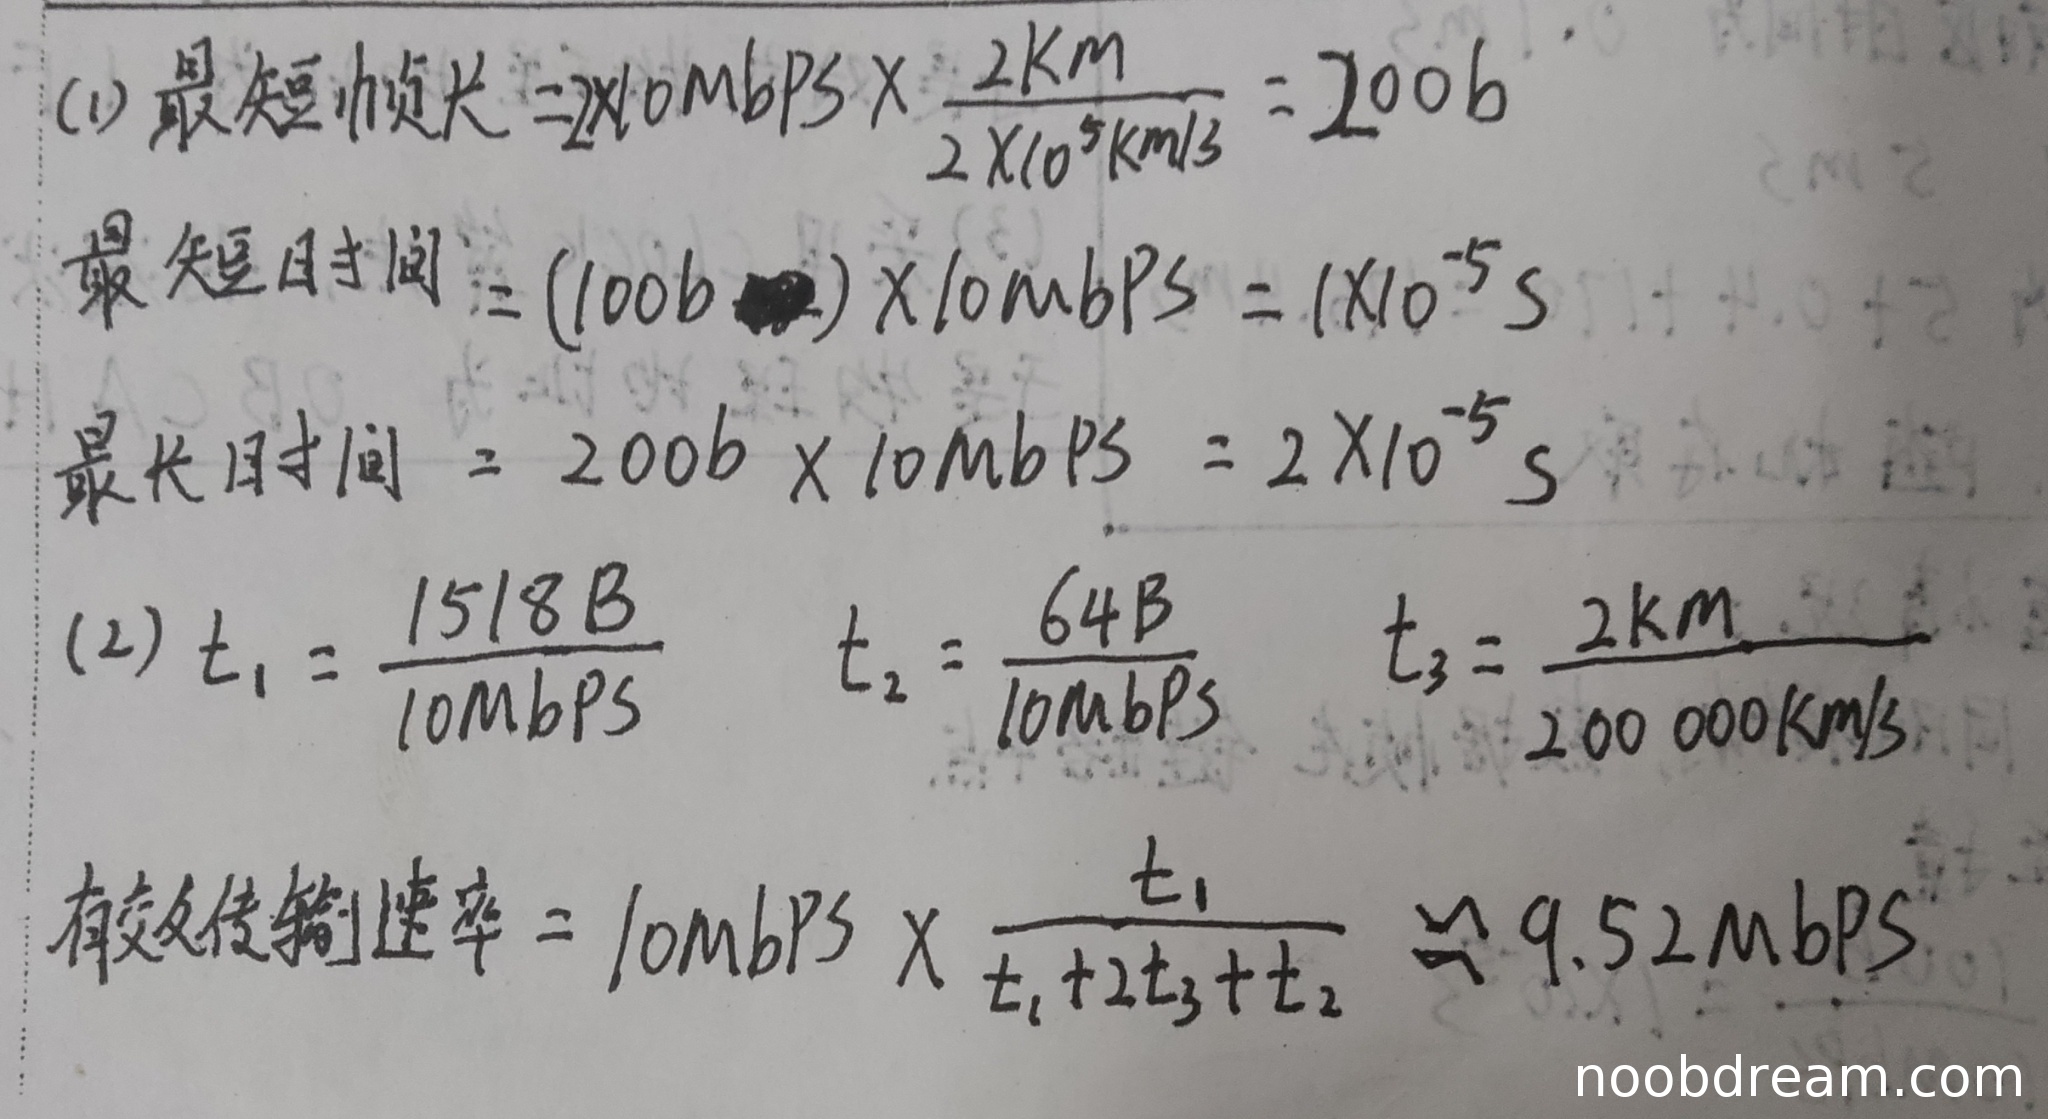 (1) 最短帧长 = 2×10MbPS × 2KM / 2×10⁵KM/S = 200b
最短时间 = (100b ) × 10MbPS = 1×10⁻⁵ S
最长时间 = 200b × 10MbPS = 2×10⁻⁵ S
(2) t₁ = 1518B / 10MbPS t₂ = 64B / 10MbPS t₃ = 2KM / 200 000KM/S
有效传输速率 = 10MbPS × t₁ / t₁+2t₃+t₂ ≈ 9.52MbPS
noobdream.com